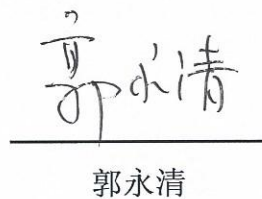 郭永清
郭永清